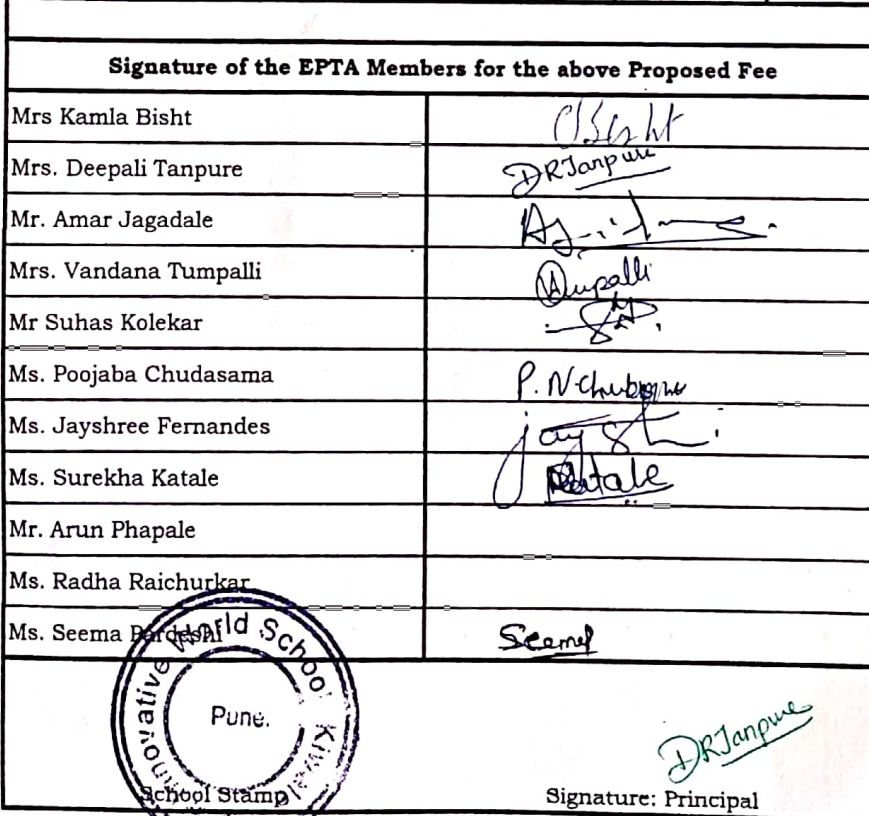 Signature of the EPTA Members for the above Proposed Fee
Mrs Kamla Bisht
Mrs. Deepali Tanpure DRTanpure
Mr. Amar Jagadale
Mrs. Vandana Tumpalli
Mr Suhas Kolekar
Ms. Poojaba Chudasama
Ms. Jayshree Fernandes
Ms. Surekha Katale Katale
Mr. Arun Phapale
Ms. Radha Raichurkar
Ms. Seema Pardeshi
Innovative World School
Pune.
DRTanpure
School Stamp Signature: Principal